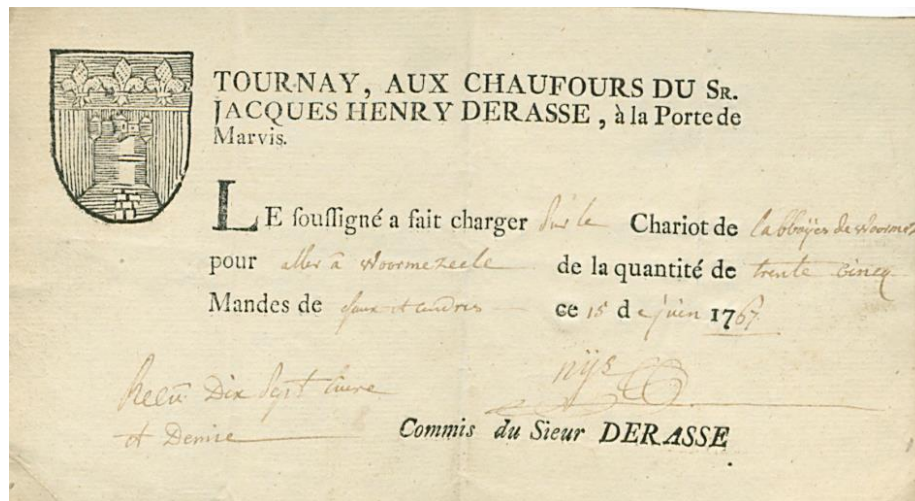 TOURNAY, AUX CHAUFOURS DU SR.
JACQUES HENRY DERASSE, à la Porte de
Marvis.
LE soussigné a fait charger sur le Chariot de l'abbaÿes de Woormez
pour aller à Woormezeele de la quantité de trente cincq
Mandes de et cendres ce 15 de juin 1767
nijs
Recu Dix Sept livre
et Demie
Commis du Sieur DERASSE